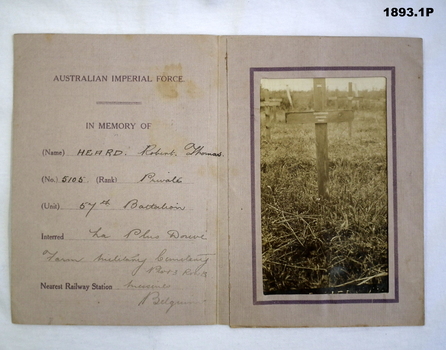 1893.1P
AUSTRALIAN IMPERIAL FORCE.
IN MEMORY OF
(Name) HEARD. Robert. Thomas.
(No.) 5105 (Rank) Private
(Unit) 57th Battalion
Interred La Plus Douve
Farm Military Cemetery
Nearest Railway Station
Belgium